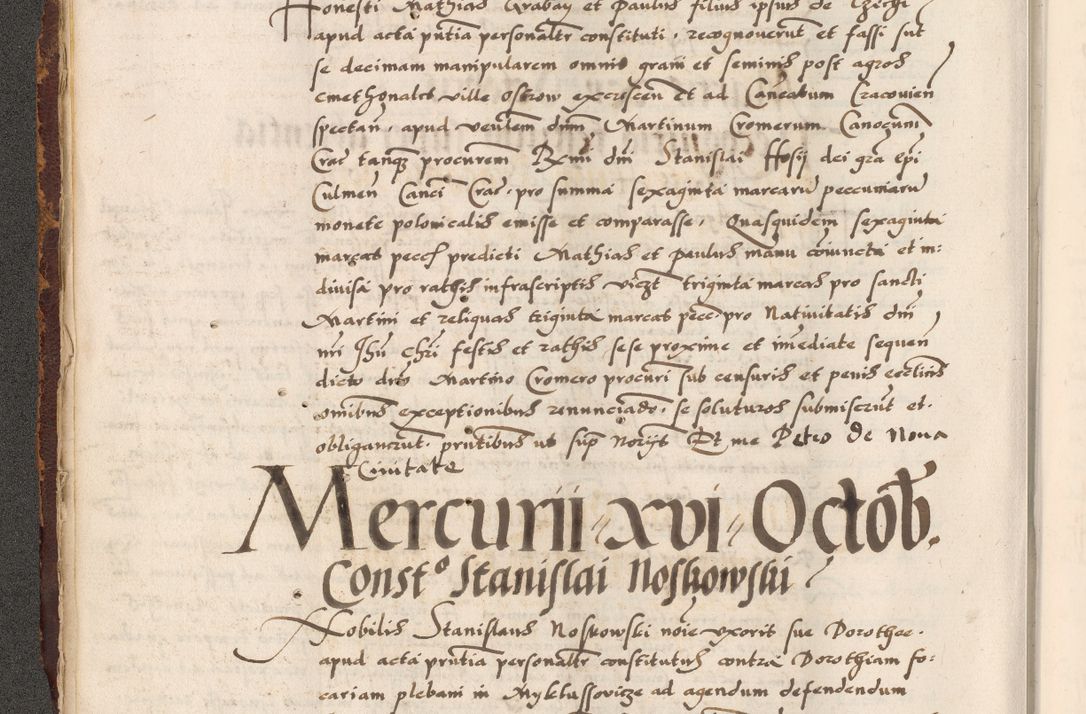 Honesti Mathias Grabay et Paulus filius ipsius de
apud acta pntia personaltr constituti, recognoverut et fassi sut
se decimam manipularem omnis grani et seminis post agros
cmethonales ville Ostrow excrescen et ad Cancatum Cracovien
spectan, apud venlem dnm Martinum Cromerum Canocum
Crac tanq procurem Rmi dni Stanislai Hosij dei gra epi
Culmen Canci Crac, pro summa sexaginta marcaru peccuniaru
monete polonicalis emisse et comparasse, Quasquidem sexaginta
marcas pecc predicti Mathias et Paulus manu coniuncta et in:
divisa pro rathis infrascriptis viczt triginta marcas pro sancti
Martini et reliquas triginta marcas pecc pro Nativitatis dni
nri Jhu Chri festis et rathis sese proxime et imediate sequen
dicto dno Martino Cromero procuri sub censuris et penis ecclicis
omibus exceptionibus renunciado, se soluturos submiserut et
obligaverut, pntibus ut sup Norijs Et me Petro de Nova
Civitate
Mercurii xvi Octob.
Const° Stanislai Noskowski
Nobilis Stanislaus Noskowski noie uxoris sue Dorothee
apud acta pntia personaltr constitutus contra Dorothiam fo:
cariam plebani in Myklussovicze ad agendum defendendum